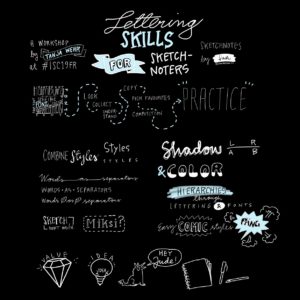 Lettering
SKILLS
FOR SKETCH-
NOTERS
A WORKSHOP
by TANJA WEHR
at #ISC19FR
SKETCHNOTES
by
LOOK
COLLECT
UNDER-
STAND
COPY
YOUR FAVOURITES
COMPETITION
PRACTICE
COMBINE Styles Styles
STYLES
Words as separators
WORDS-AS-SEPARATORS
Words Drop separators
Shadow
L R
A B
& COLOR
HIERARCHIES
through
LETTERING & FONTS
SKETCH
Miksi?
Easy COMIC styles
PÄNG!
VALUE
IDEA
HEY
Jude!